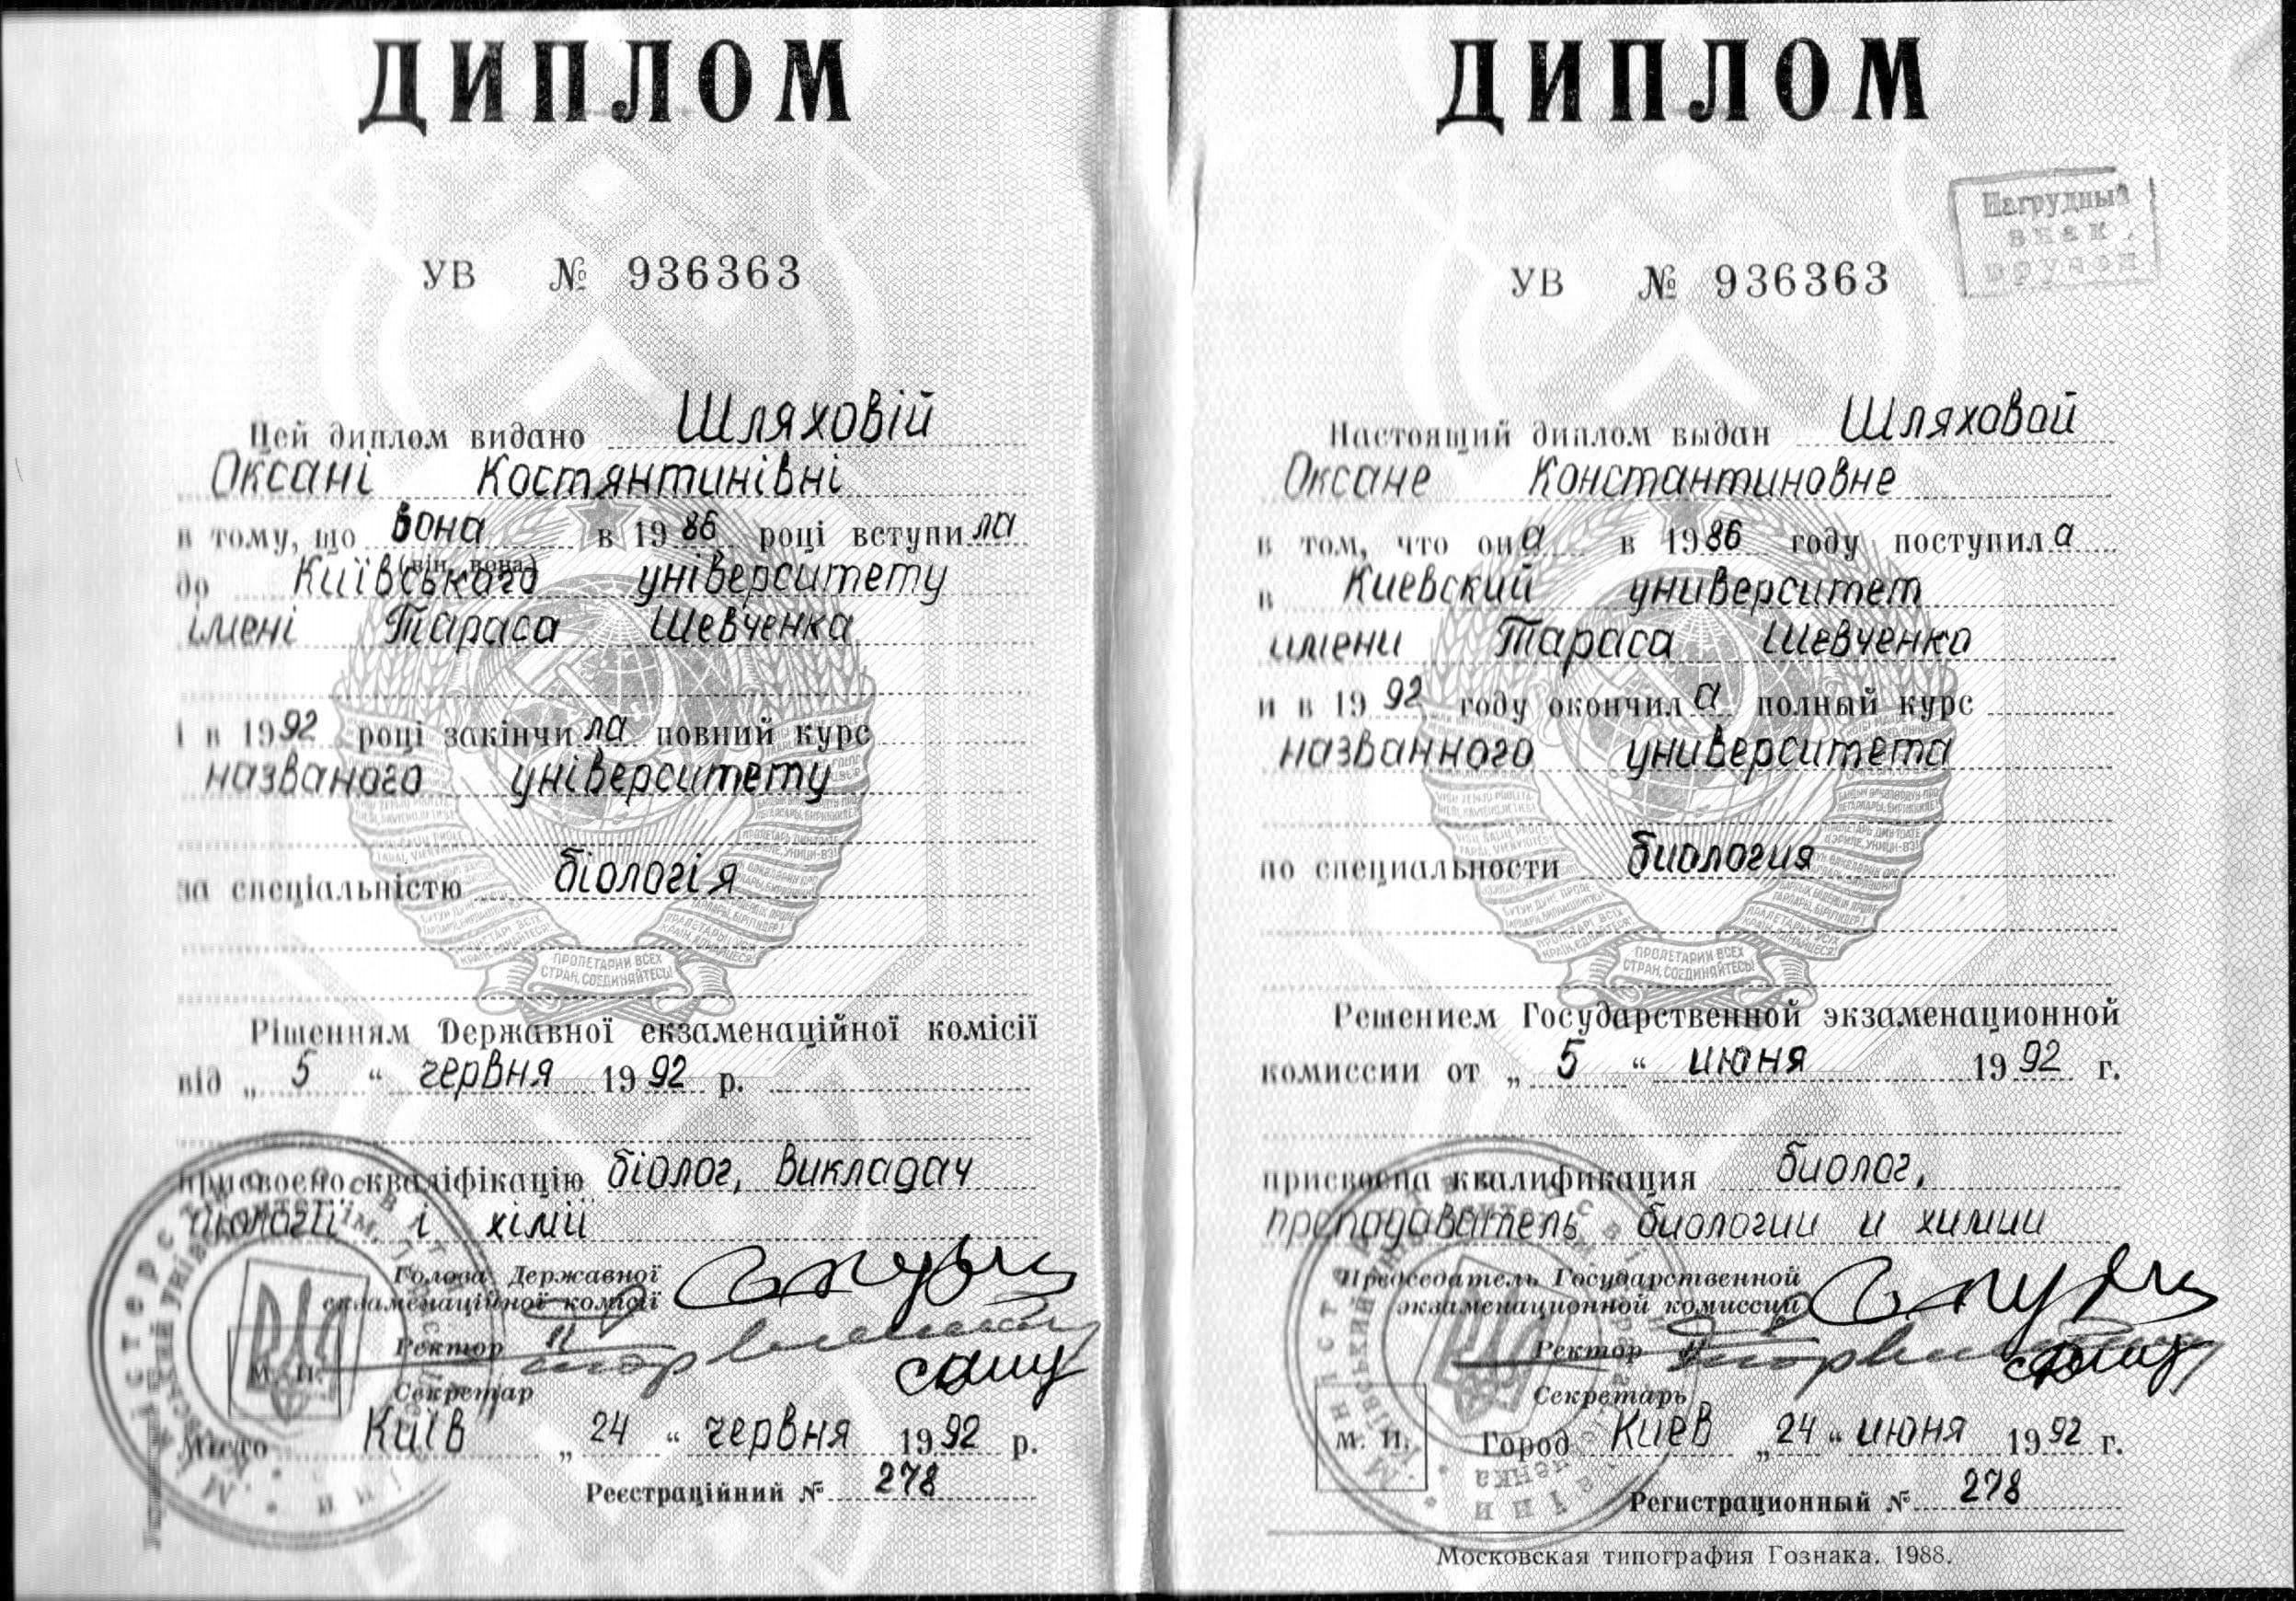 ДИПЛОМ
УВ № 936363
Цей диплом видано Шляховій
Оксані Костянтинівні
в тому, що вона в 1986 році вступила
(він, вона)
до Київського університету
імені Тараса Шевченка
і в 1992 році закінчила повний курс
названого університету
за спеціальністю біологія
ПРОЛЕТАРИИ ВСЕХ
СТРАН, СОЕДИНЯЙТЕСЬ!
Рішенням Державної екзаменаційної комісії
від „ 5 “ червня 1992 р.
присвоєно кваліфікацію біолог, викладач
біології і хімії
Голова Державної
екзаменаційної комісії
Ректор
М. П.
Секретар
Місто Київ „ 24 “ червня 1992 р.
Реєстраційний № 278
ДИПЛОМ
Нагрудный
знак
вручен
УВ № 936363
Настоящий диплом выдан Шляховой
Оксане Константиновне
в том, что она в 1986 году поступила
в Киевский университет
имени Тараса Шевченко
и в 1992 году окончила полный курс
названного университета
по специальности биология
ПРОЛЕТАРИИ ВСЕХ
СТРАН, СОЕДИНЯЙТЕСЬ!
Решением Государственной экзаменационной
комиссии от „ 5 “ июня 1992 г.
присвоена квалификация биолог,
преподаватель биологии и химии
Председатель Государственной
экзаменационной комиссии
Ректор
Секретарь
М. П. Город Киев „24“ июня 1992 г.
Регистрационный № 278
Московская типография Гознака. 1988.